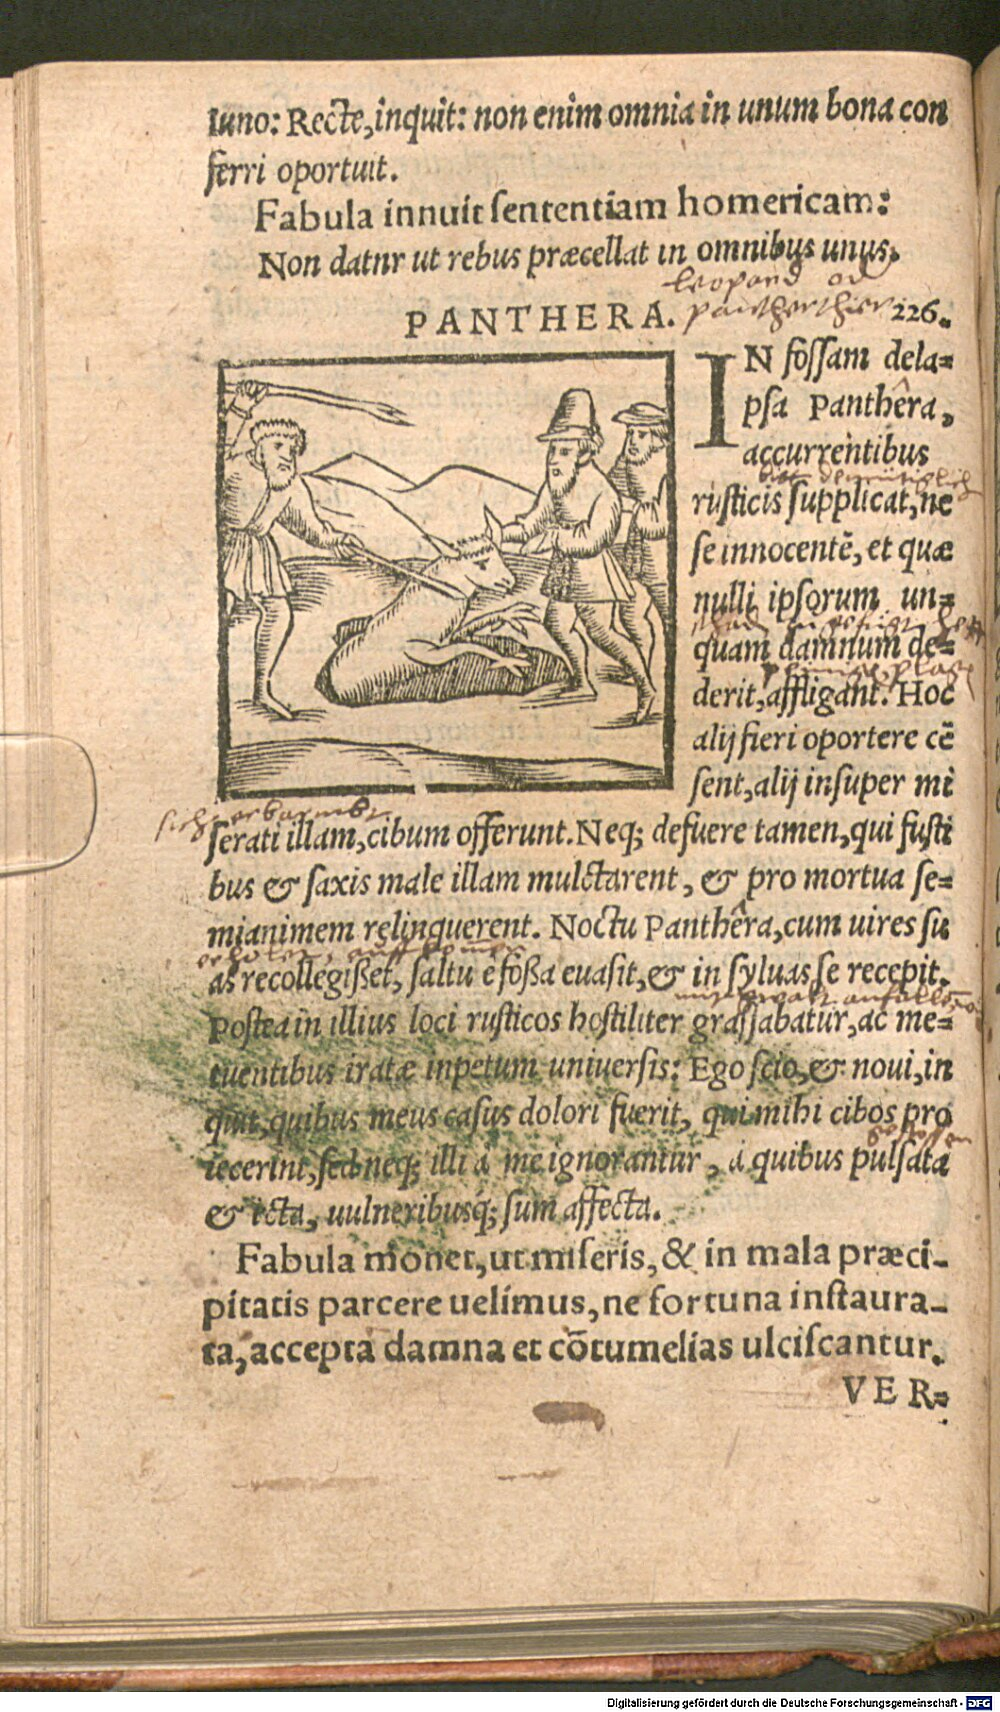 Iuno: Recte, inquit: non enim omnia in unum bona con
ferri oportuit.
Fabula innuit sententiam homericam:
Non datnr ut rebus præcellat in omnibus unus.
leopard od
PANTHERA. pantherthier 226.
IN fossam dela=
psa Panthêra,
accurrentibus
bitt demütiglich
rusticis supplicat, ne
se innocentē, et quæ
nulli ipsorum un=
quam damnum de=
derit, affligant. Hoc
alij fieri oportere cē
sent, alij insuper mi
sich erbarmbt
serati illam, cibum offerunt. Neq; defuere tamen, qui fusti
bus & saxis male illam mulctarent, & pro mortua se=
mianimem relinquerent. Noctu Panthêra, cum uires su
as recollegisset, saltu è fossa euasit, & in syluas se recepit.
Postea in illius loci rusticos hostiliter grassabatur, ac me=
tuentibus iratæ inpetum uniuersis: Ego scio, & noui, in
quit, quibus meus casus dolori fuerit, qui mihi cibos pro
iecerint, sed neq; illi à me ignorantur, à quibus pulsata
& icta, uulneribusq́; sum affecta.
Fabula monet, ut miseris, & in mala præci-
pitatis parcere uelimus, ne fortuna instaura-
ta, accepta damna et cōtumelias ulciscantur.
VER=
Digitalisierung gefördert durch die Deutsche Forschungsgemeinschaft - DFG